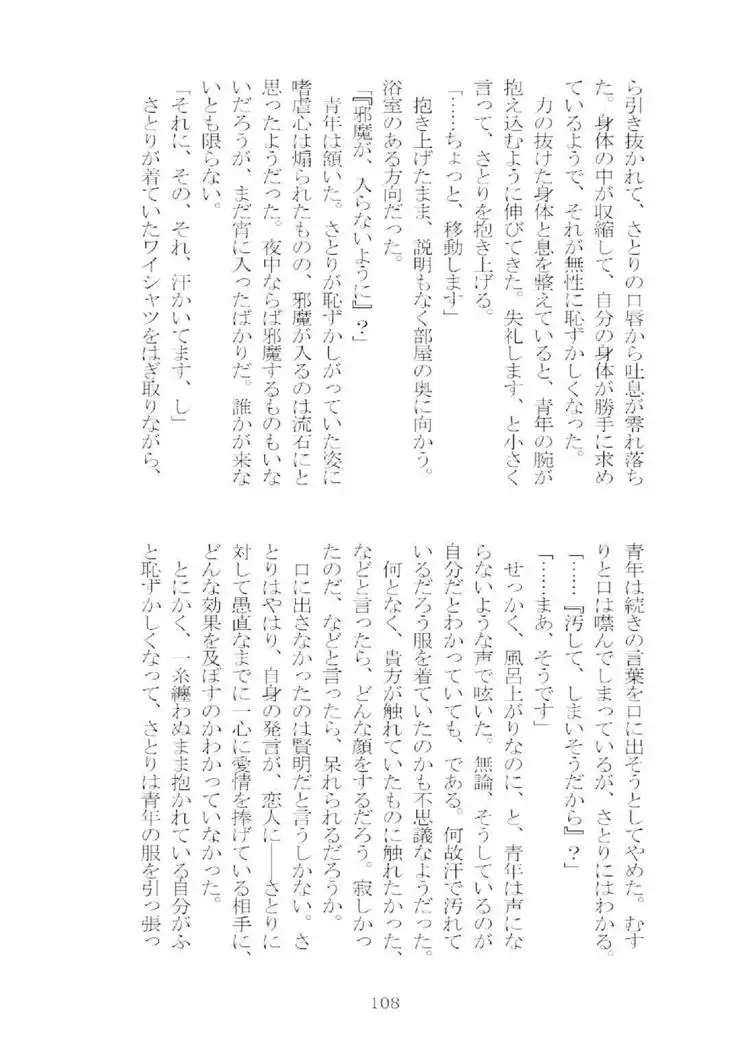 ら引き抜かれて、さとりの口唇から吐息が零れ落ち
た。身体の中が収縮して、自分の身体が勝手に求め
ているようで、それが無性に恥ずかしくなった。
力の抜けた身体と息を整えていると、青年の腕が
抱え込むように伸びてきた。失礼します、と小さく
言って、さとりを抱き上げる。
「……ちょっと、移動します」
抱き上げたまま、説明もなく部屋の奥に向かう。
浴室のある方向だった。
「『邪魔が、入らないように』？」
青年は頷いた。さとりが恥ずかしがっていた姿に
嗜虐心は煽られたものの、邪魔が入るのは流石にと
思ったようだった。夜中ならば邪魔するものもいな
いだろうが、まだ宵に入ったばかりだ。誰かが来な
いとも限らない。
「それに、その、それ、汗かいてます、し」
さとりが着ていたワイシャツをはぎ取りながら、
青年は続きの言葉を口に出そうとしてやめた。むす
りと口は噤んでしまっているが、さとりにはわかる。
「……『汚して、しまいそうだから』？」
「……まあ、そうです」
せっかく、風呂上がりなのに、と、青年は声にな
らないような声で呟いた。無論、そうしているのが
自分だとわかっていても、である。何故汗で汚れて
いるだろう服を着ていたのかも不思議なようだった。
何となく、貴方が触れていたものに触れたかった、
などと言ったら、どんな顔をするだろう。寂しかっ
たのだ、などと言ったら、呆れられるだろうか。
口に出さなかったのは賢明だと言うしかない。さ
とりはやはり、自身の発言が、恋人に――さとりに
対して愚直なまでに一心に愛情を捧げている相手に、
どんな効果を及ぼすのかわかっていなかった。
とにかく、一糸纏わぬまま抱かれている自分がふ
と恥ずかしくなって、さとりは青年の服を引っ張っ
108